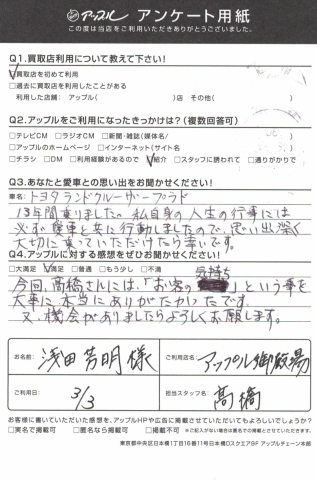 アップル アンケート用紙
この度は当店をご利用いただきありがとうございました。
Q1.買取店利用について教えて下さい!
☑買取店を初めて利用
□過去に買取店を利用したことがある
利用した店舗: アップル( )店 その他( )
Q2.アップルをご利用になったきっかけは?(複数回答可)
□テレビCM □ラジオCM □新聞・雑誌(媒体名/ )
□アップルのホームページ □インターネット(サイト名 )
□チラシ □DM □利用経験があるので ☑紹介 □スタッフに誘われて □通りがかりで
Q3.あなたと愛車との思い出をお聞かせください!
車名: トヨタランドクルーザープラド
13年間乗りました。私自身の人生の行事には
必ず愛車と共に行動しましたので、思い出深く
大切に乗っていただけたら幸いです。
Q4.アップルに対する感想をぜひお聞かせください!
□大満足 ☑満足 □普通 □もう少し □不満
気持ち
今回、高橋さんには、「お客の 」という事を
大事に、本当にありがたかったです。
又、機会がありましたらよろしくお願します。
お名前: 浅田芳明 様
ご利用店名: アップル御殿場
ご利用日: 3/3
担当スタッフ名: 高橋
お客様に書いていただいた感想を、アップルHPや広告に掲載させていただいてもよろしいでしょうか?
□実名で掲載可 □匿名なら掲載可 □掲載不可 ※ご記入がない場合は匿名での掲載とさせていただきます。
東京都中央区日本橋1丁目16番11号日本橋Dスクエア9F アップルチェーン本部